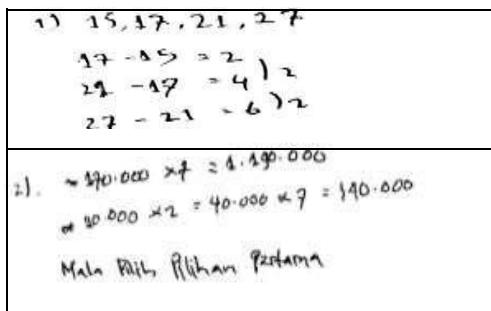 1) 15, 17, 21, 27
17 - 15 = 2
21 - 17 = 4 ) 2
27 - 21 = 6 ) 2
2). ~ 170.000 x 7 = 1.190.000
20.000 x 2 = 40.000 x 7 = 140.000
Maka Pilih Pilihan Pertama